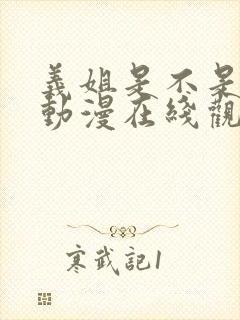 義姐是不是
動漫在綫觀
寒武記1